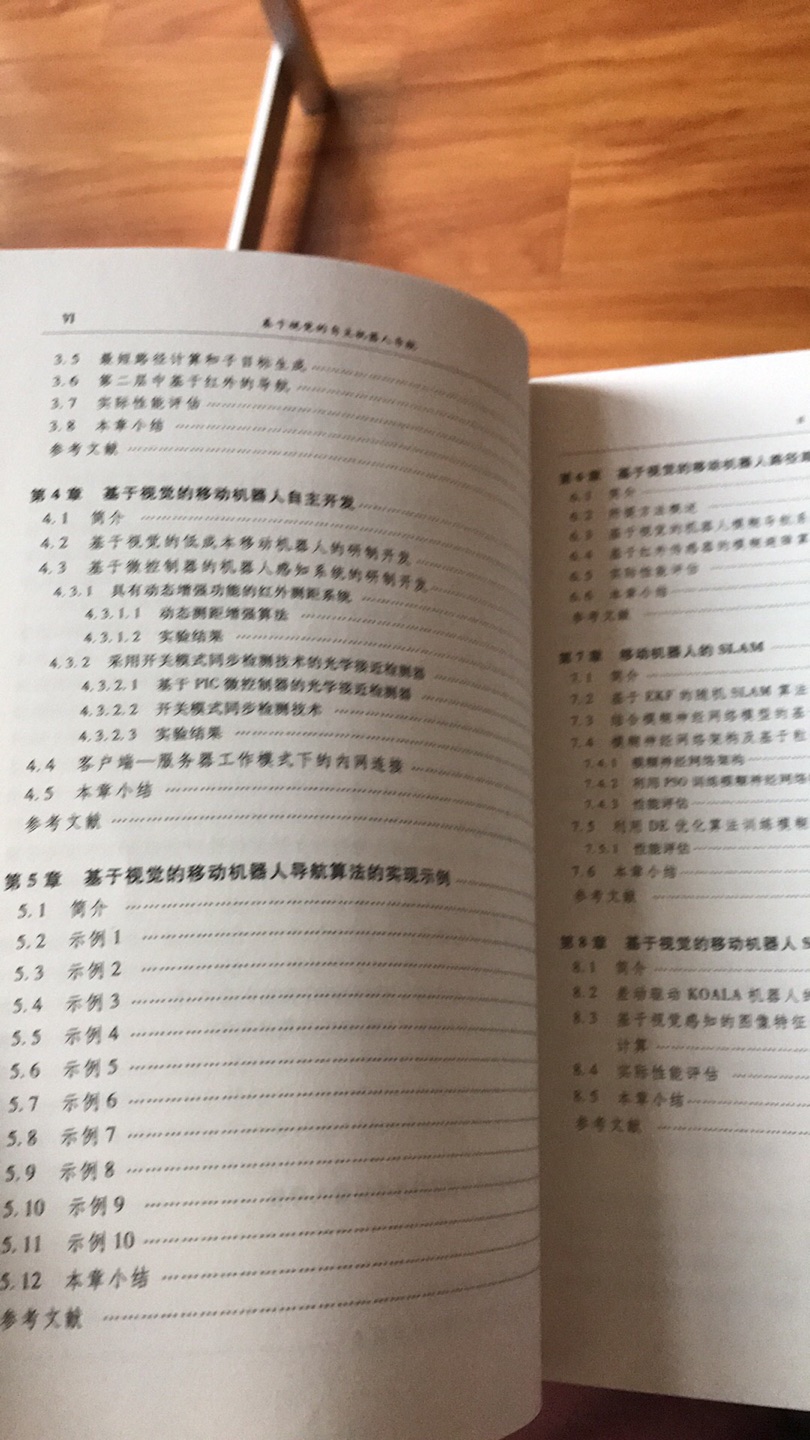 VI
基于视觉的自主机器人导航
3.5 最短路径计算和子目标生成
3.6 第二层中基于红外的导航
3.7 实际性能评估
3.8 本章小结
参考文献
第4章 基于视觉的移动机器人自主开发
4.1 简介
4.2 基于视觉的低成本移动机器人的研制开发
4.3 基于微控制器的机器人感知系统的研制开发
4.3.1 具有动态增强功能的红外测距系统
4.3.1.1 动态测距增强算法
4.3.1.2 实验结果
4.3.2 采用开关模式同步检测技术的光学接近检测器
4.3.2.1 基于PIC微控制器的光学接近检测器
4.3.2.2 开关模式同步检测技术
4.3.2.3 实验结果
4.4 客户端—服务器工作模式下的内网连接
4.5 本章小结
参考文献
第5章 基于视觉的移动机器人导航算法的实现示例
5.1 简介
5.2 示例1
5.3 示例2
5.4 示例3
5.5 示例4
5.6 示例5
5.7 示例6
5.8 示例7
5.9 示例8
5.10 示例9
5.11 示例10
5.12 本章小结
参考文献
第6章 基于视觉的移动机器人路径
6.1 简介
6.2 所提方法概述
6.3 基于视觉的机器人模糊导航系
6.4 基于红外传感器的模糊避障算
6.5 实际性能评估
6.6 本章小结
参考文献
第7章 移动机器人的SLAM
7.1 简介
7.2 基于EKF的随机SLAM算法
7.3 结合模糊神经网络模型的基
7.4 模糊神经网络架构及基于粒
7.4.1 模糊神经网络架构
7.4.2 利用PSO训练模糊神经网络
7.4.3 性能评估
7.5 利用DE优化算法训练模糊
7.5.1 性能评估
7.6 本章小结
参考文献
第8章 基于视觉的移动机器人
8.1 简介
8.2 差动驱动KOALA机器人的
8.3 基于视觉感知的图像特征
计算
8.4 实际性能评估
8.5 本章小结
参考文献